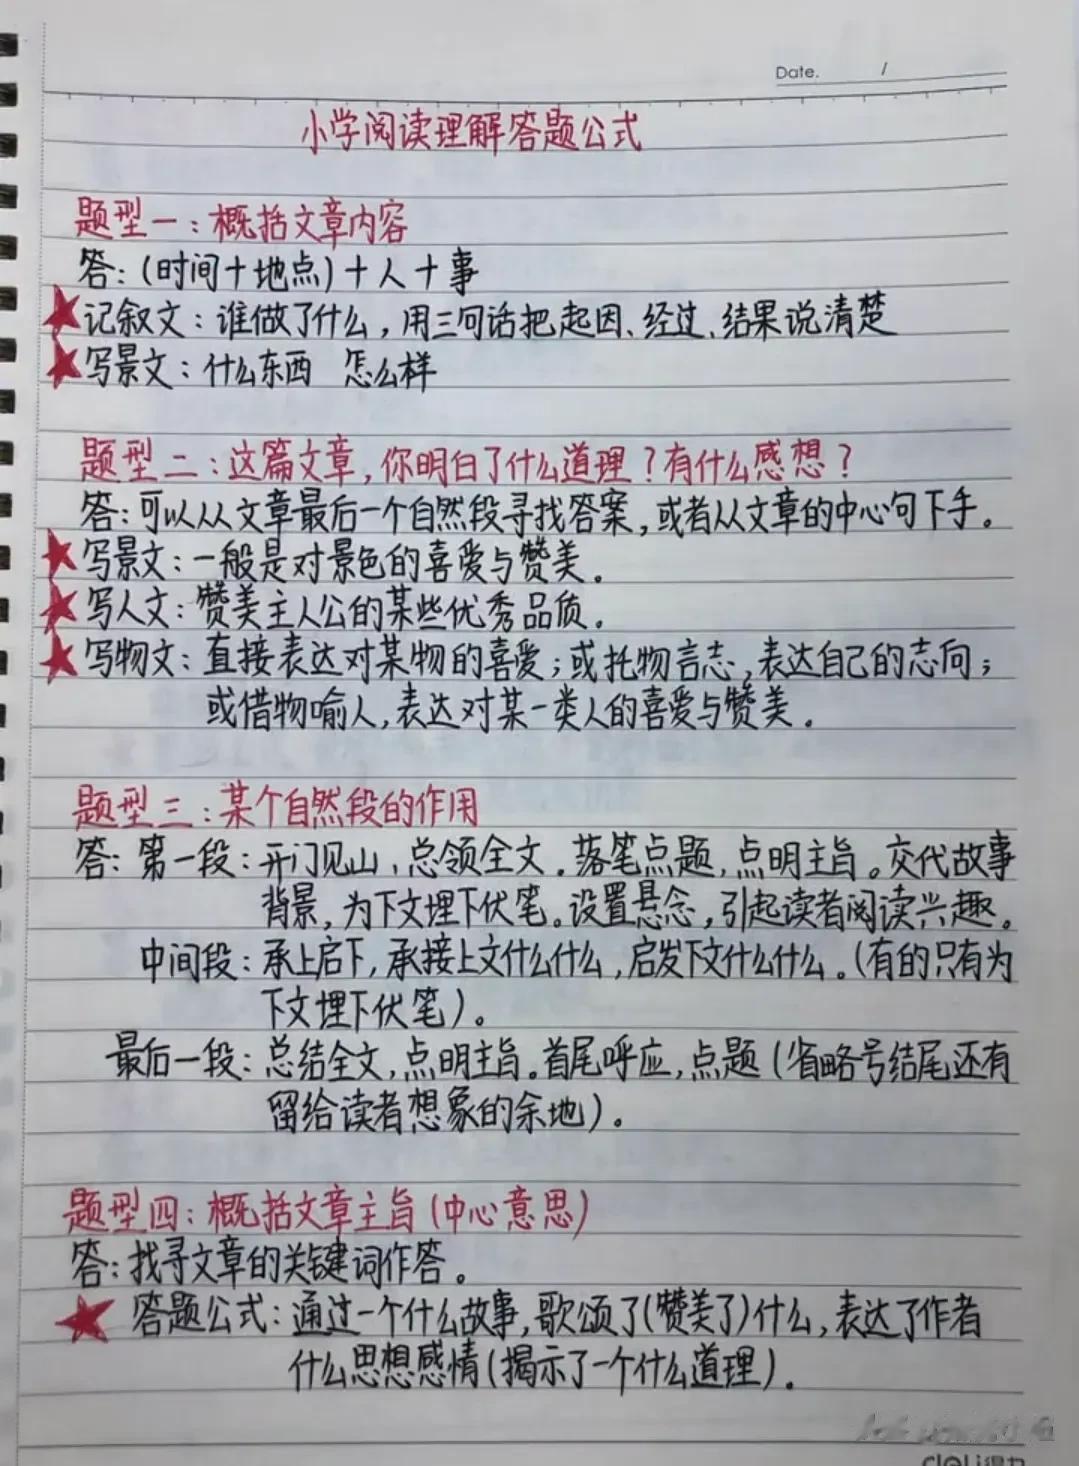 Date. /
小学阅读理解答题公式
题型一：概括文章内容
答：(时间+地点)+人+事
记叙文：谁做了什么，用三句话把起因、经过、结果说清楚
写景文：什么东西 怎么样
题型二：这篇文章，你明白了什么道理？有什么感想？
答：可以从文章最后一个自然段寻找答案，或者从文章的中心句下手。
写景文：一般是对景色的喜爱与赞美。
写人文：赞美主人公的某些优秀品质。
写物文：直接表达对某物的喜爱；或托物言志，表达自己的志向；
或借物喻人，表达对某一类人的喜爱与赞美。
题型三：某个自然段的作用
答：第一段：开门见山，总领全文。落笔点题，点明主旨。交代故事
背景，为下文埋下伏笔。设置悬念，引起读者阅读兴趣。
中间段：承上启下，承接上文什么什么，启发下文什么什么。(有的只有为
下文埋下伏笔)。
最后一段：总结全文，点明主旨。首尾呼应，点题(省略号结尾还有
留给读者想象的余地)。
题型四：概括文章主旨(中心意思)
答：找寻文章的关键词作答。
答题公式：通过一个什么故事，歌颂了(赞美了)什么，表达了作者
什么思想感情(揭示了一个什么道理)。
deli得力